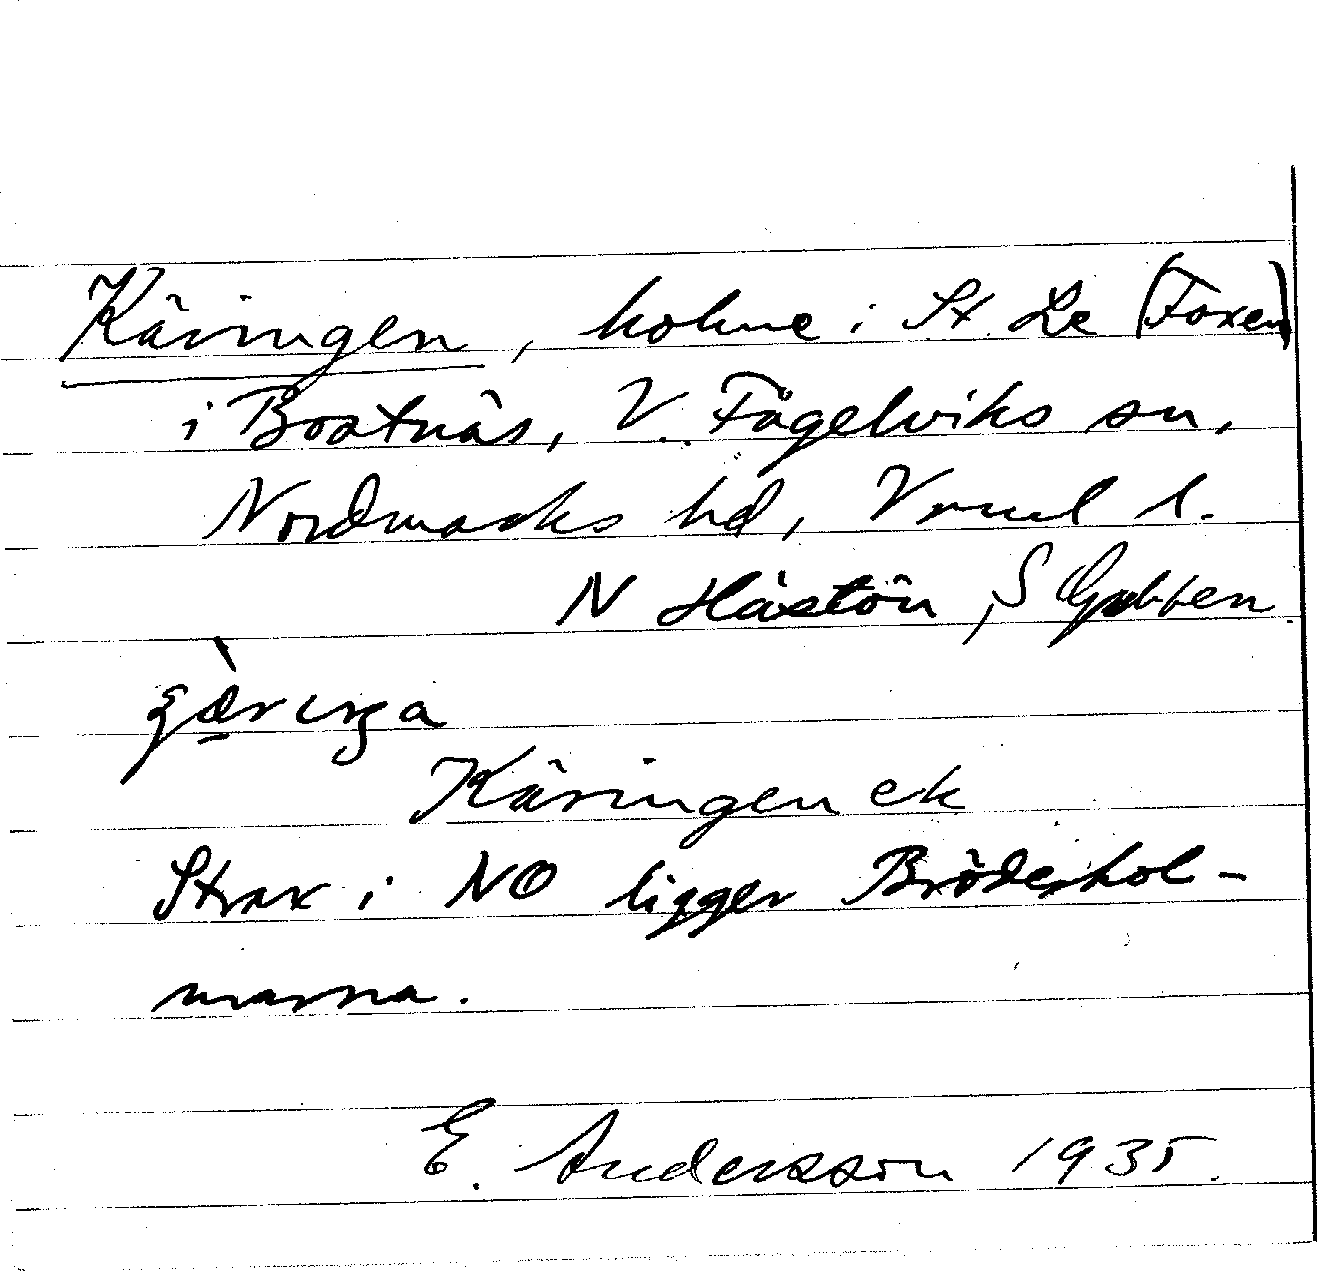 Käringen, holme i St. Le (Foxen)
i Bostnäs, V. Fågelviks sn,
Nordmarks hd, Vrml l.
N Hästön, S Gubben
Käringen ek
Strax i NO ligger Brödershol-
marna.
E. Andersson 1935.